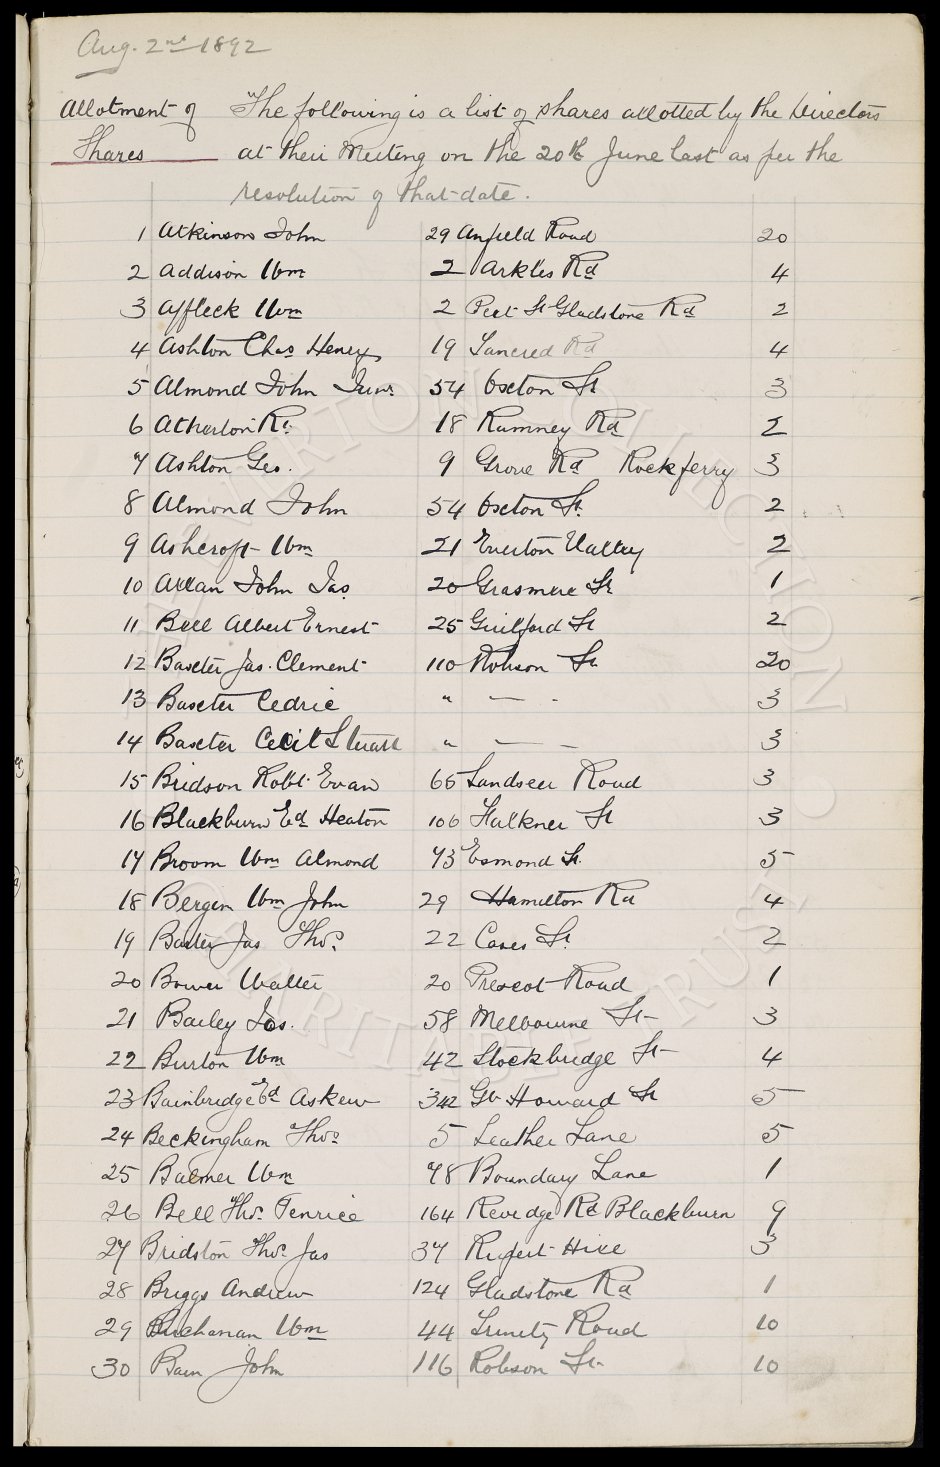 Aug. 2nd 1892
Allotment of The following is a list of shares allotted by the Directors
Shares at their Meeting on the 20th June last as per the
resolution of that date.
1 Atkinson John 29 Anfield Road 20
2 Addison Wm 2 Arkles Rd 4
3 Affleck Wm 2 Peet St Gladstone Rd 2
4 Ashton Chas Henry 19 Tancred Rd 4
5 Almond John Junr 54 Oxton St 3
6 Atherton Rt 18 Rumney Rd 2
7 Ashton Geo. 9 Grove Rd Rockferry 3
8 Almond John 54 Oxton St. 2
9 Ashcroft Wm 21 Everton Valley 2
10 Allan John Jas 20 Grasmere St 1
11 Bell Albert Ernest 25 Guilford St 2
12 Baxter Jas. Clement 110 Robson St 20
13 Baxter Cedric " — - 3
14 Baxter Cecil Stuart " — - 3
15 Bridson Robt Evan 65 Landseer Road 3
16 Blackburn Ed Heaton 106 Falkner St 3
17 Broom Wm Almond 73 Esmond St. 5
18 Bergin Wm John 29 Hamilton Rd 4
19 Jas Thos. 22 Cares St. 2
20 Bower Walter 20 Prescot Road 1
21 Bailey Jos. 58 Melbourne St 3
22 Burton Wm 42 Stockbridge St 4
23 Bainbridge Ed Askew 342 Gt Howard St 5
24 Beckingham Thos 5 Leather Lane 5
25 Balmer Wm 78 Boundary Lane 1
26 Bell Thos. Fenrice 164 Revidge Rd Blackburn 9
27 Bridston Thos. Jas 37 Rupert Hill 3
28 Briggs Andrew 124 Gladstone Rd 1
29 Buchanan Wm 44 Trinity Road 10
30 Bain John 116 Robson St 10
EVERTON COLLECTION
CHARITABLE TRUST